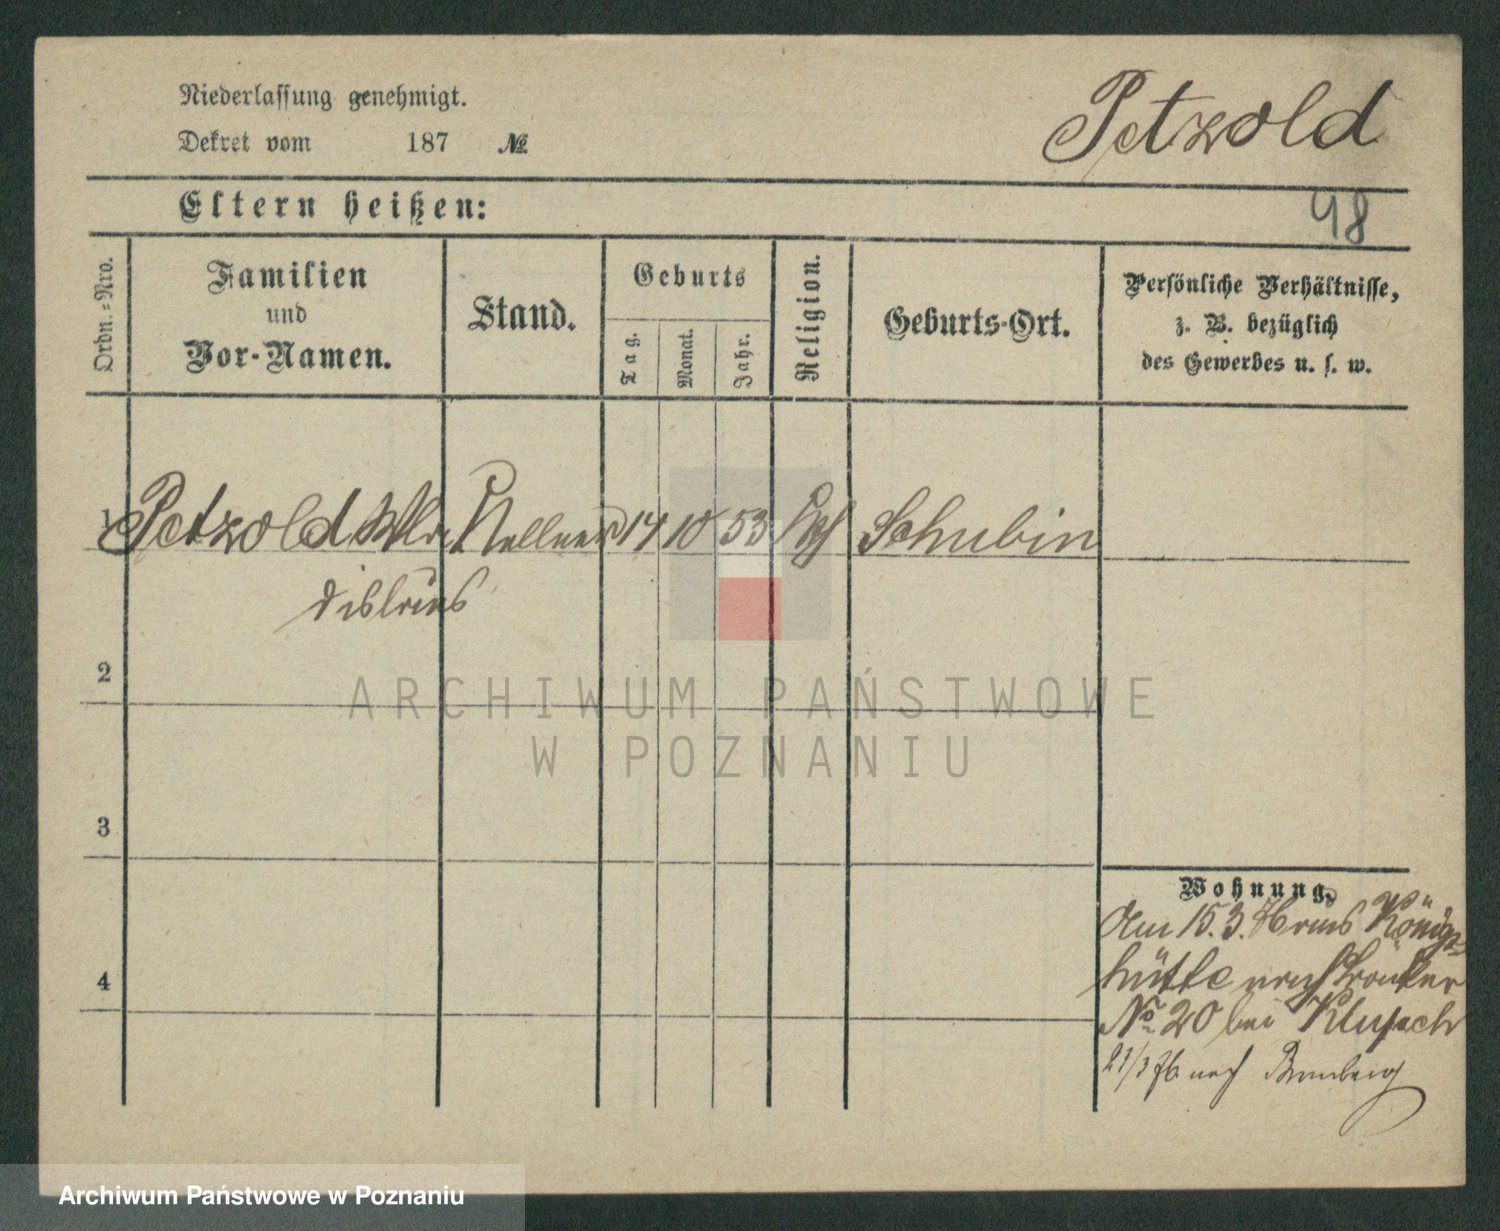 Niederlassung genehmigt.
Dekret vom 187 №
Petzold
Eltern heißen:
48
Ordn.-Nro.
Familien
und
Vor-Namen.
Stand.
Geburts
Tag.
Monat.
Jahr.
Religion.
Geburts-Ort.
Persönliche Verhältnisse,
z. B. bezüglich
des Gewerbes u. s. w.
1 Petzold Wla Kellner 14 10 53 Schubin
dislaus
2
ARCHIWUM PAŃSTWOWE
W POZNANIU
3
Wohnung.
Am 15.3. 76 aus Königs-
hütte nach
№ 20 bei
21/3 76 nach Bromberg
4
Archiwum Państwowe w Poznaniu